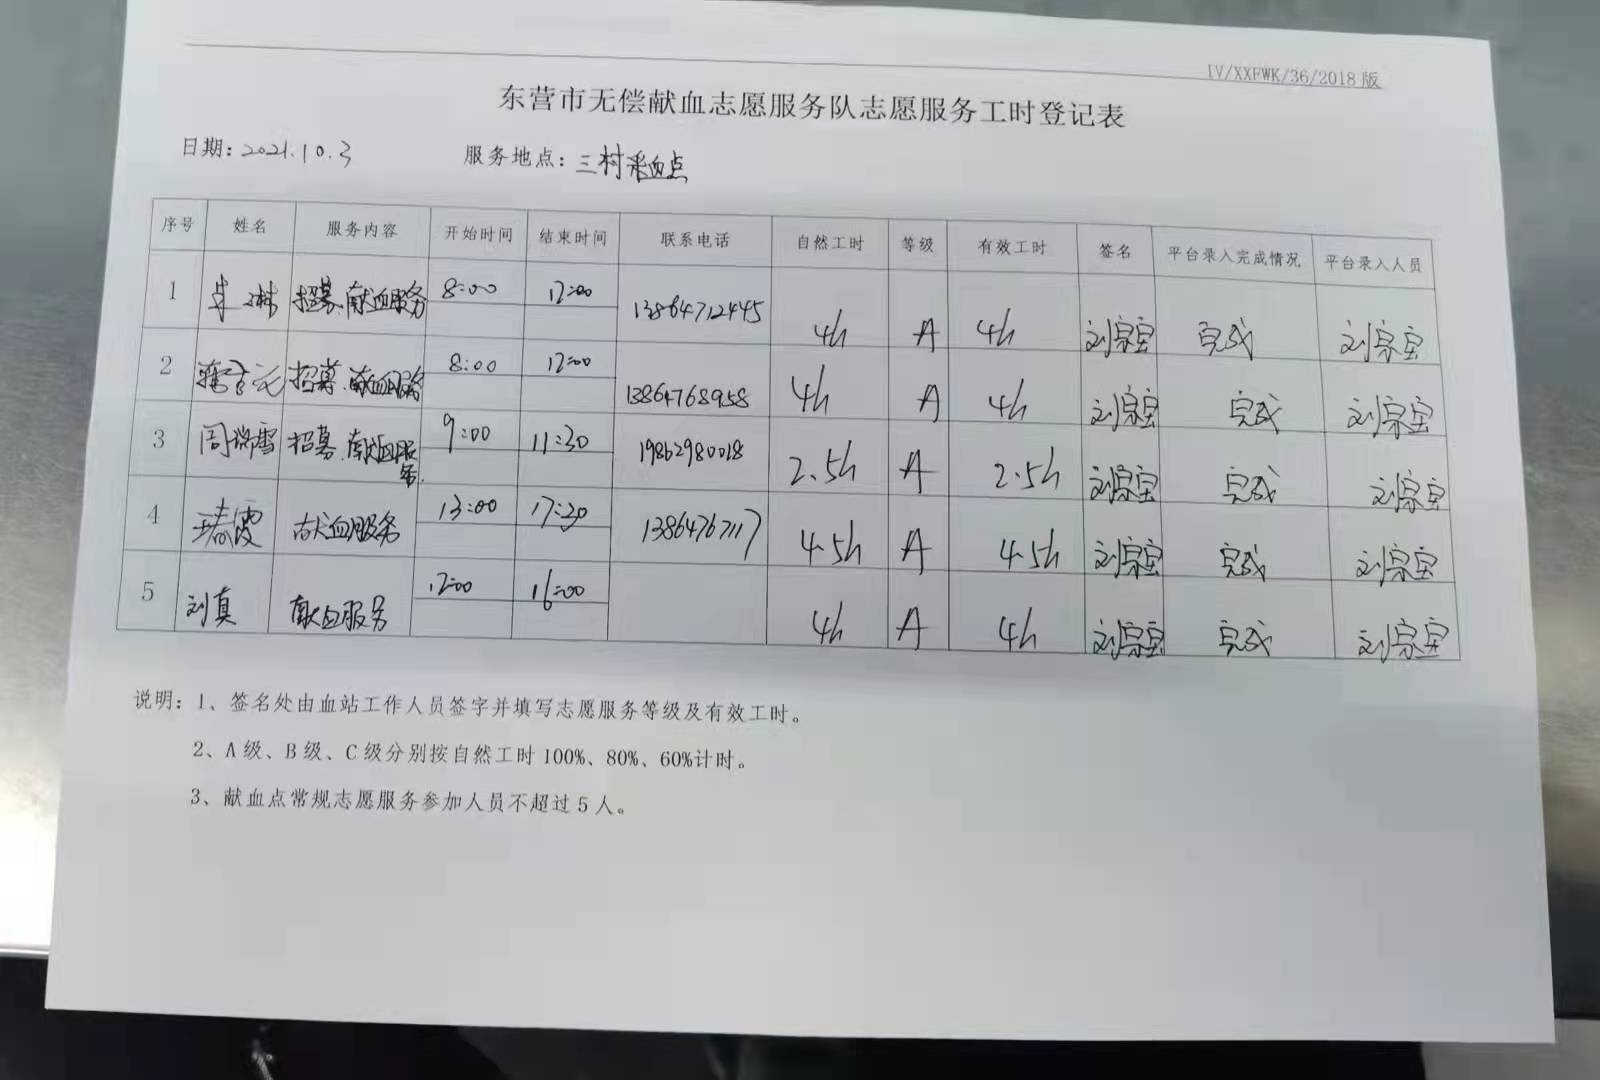 IV/XXFWK/36/2018版
东营市无偿献血志愿服务队志愿服务工时登记表
日期：2021.10.3 服务地点：三村采血点
序号 姓名 服务内容 开始时间 结束时间 联系电话 自然工时 等级 有效工时 签名 平台录入完成情况 平台录入人员
1 招募、献血服务 8:00 12:00 13864712445 4h A 4h 刘宗宝 完成 刘宗宝
2 招募、献血服务 8:00 12:00 13864768958 4h A 4h 刘宗宝 完成 刘宗宝
3 周瑞雪 招募、献血服务 9:00 11:30 19862980018 2.5h A 2.5h 刘宗宝 完成 刘宗宝
4 献血服务 13:00 17:30 13864767117 4.5h A 4.5h 刘宗宝 完成 刘宗宝
5 刘真 献血服务 12:00 16:00 4h A 4h 刘宗宝 完成 刘宗宝
说明：1、签名处由血站工作人员签字并填写志愿服务等级及有效工时。
2、A级、B级、C级分别按自然工时100%、80%、60%计时。
3、献血点常规志愿服务参加人员不超过5人。